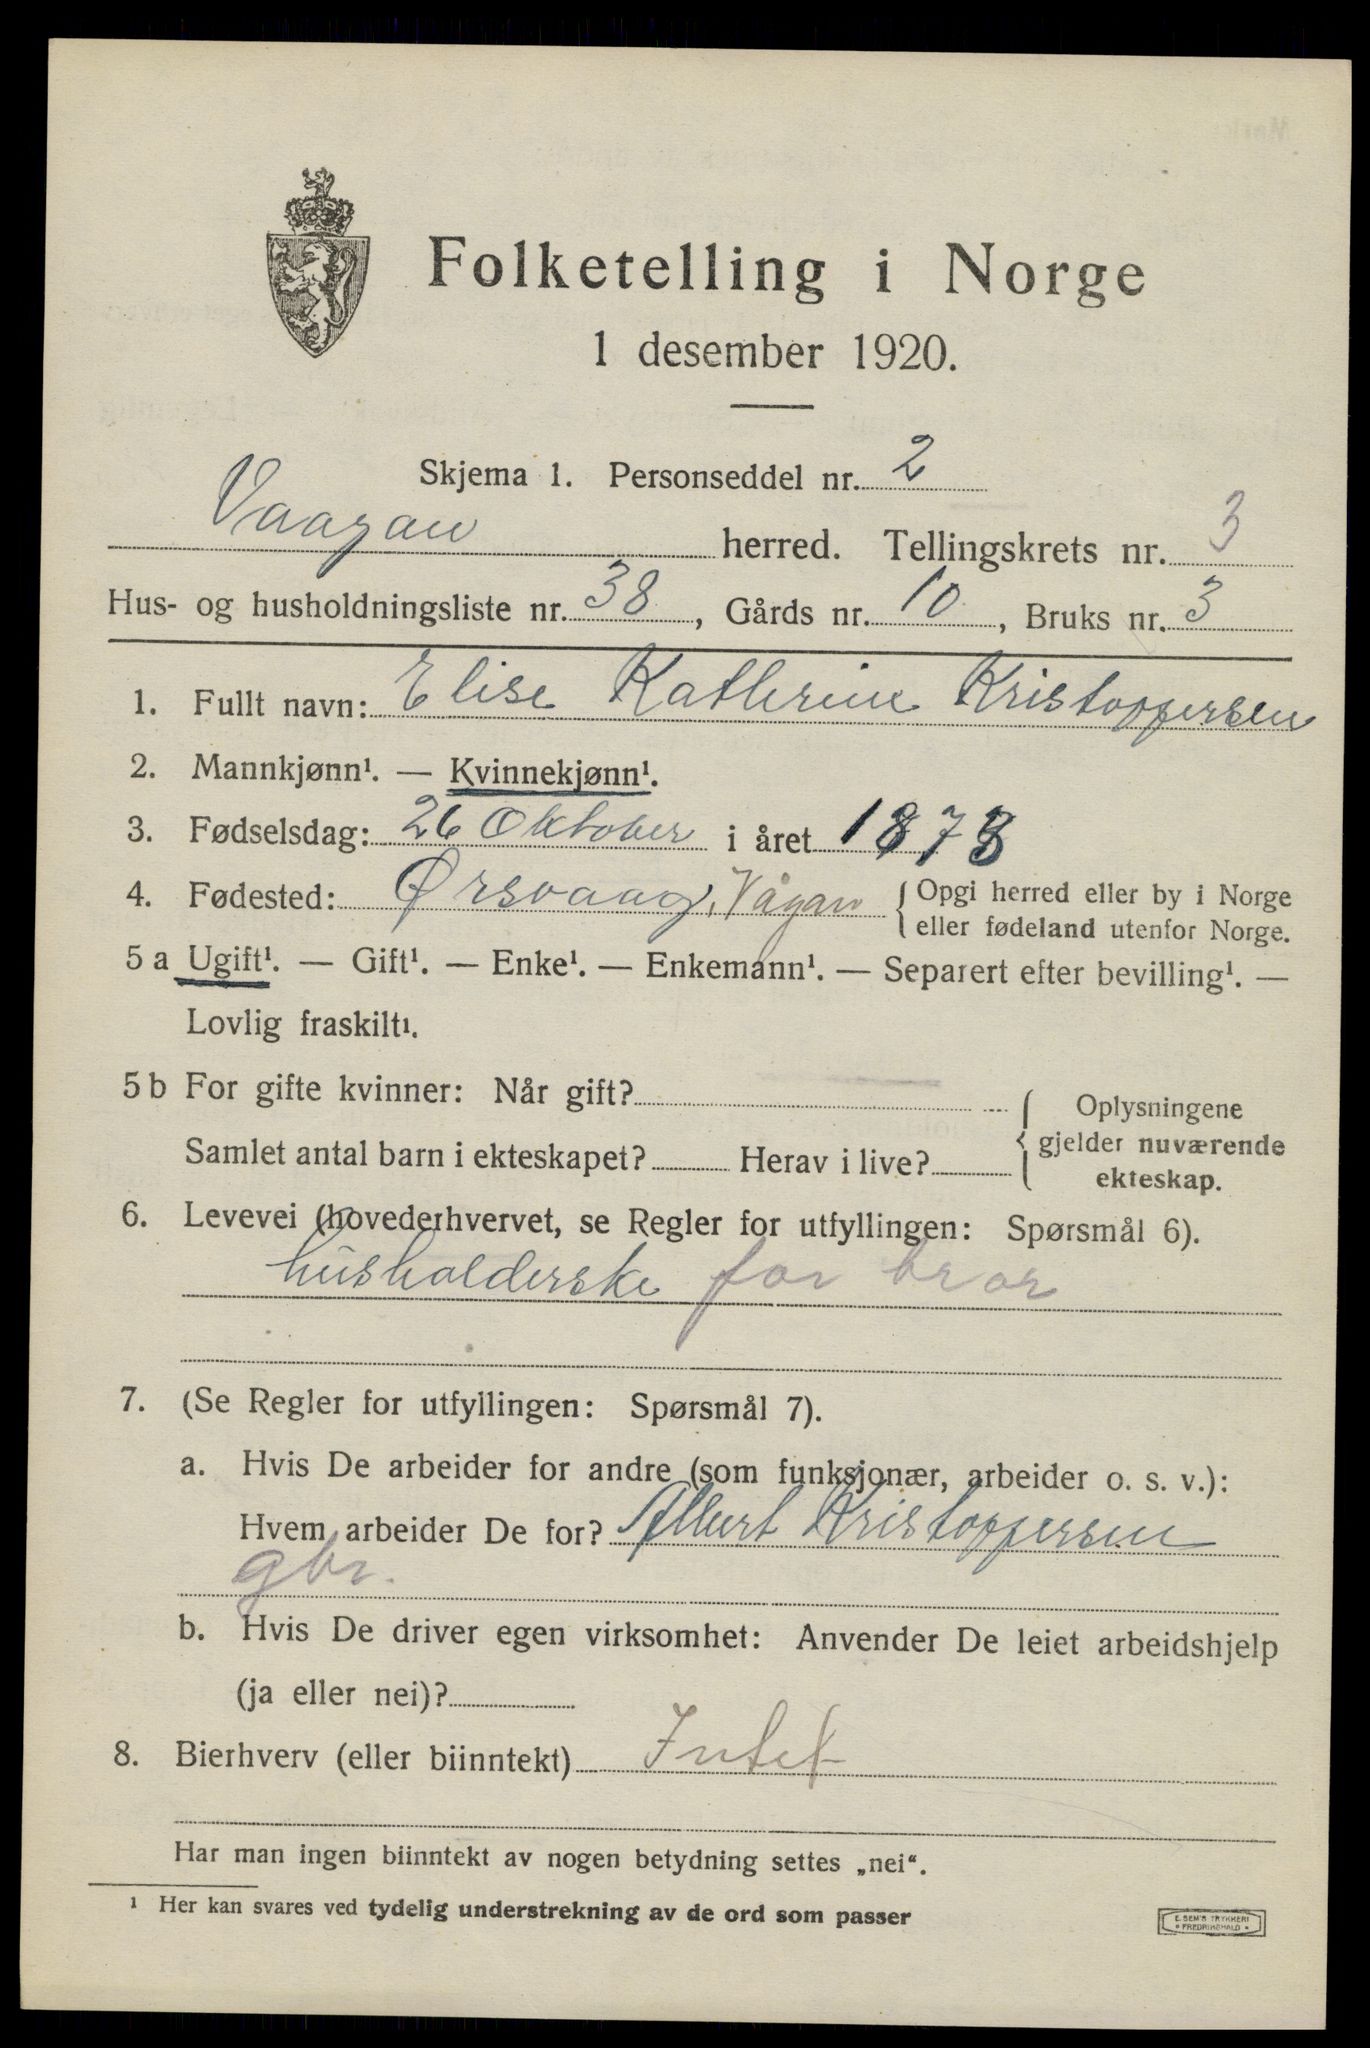 Folketelling i Norge
1 desember 1920.
Skjema 1. Personseddel nr. 2
Vaagan herred. Tellingskrets nr. 3
Hus- og husholdningsliste nr. 38, Gårds nr. 10, Bruks nr. 3
1. Fullt navn: Elise Kathrine Kristoffersen
2. Mannkjønn¹. — Kvinnekjønn¹.
3. Fødselsdag: 26 Oktober i året 1873
4. Fødested: Ørsvaag, Vågan { Opgi herred eller by i Norge
eller fødeland utenfor Norge.
5 a Ugift¹. — Gift¹. — Enke¹. — Enkemann¹. — Separert efter bevilling¹. —
Lovlig fraskilt¹.
5 b For gifte kvinner: Når gift? { Oplysningene
gjelder nuværende
ekteskap.
Samlet antal barn i ekteskapet? Herav i live?
6. Levevei (hovederhvervet, se Regler for utfyllingen: Spørsmål 6).
husholderske for bror
7. (Se Regler for utfyllingen: Spørsmål 7).
a. Hvis De arbeider for andre (som funksjonær, arbeider o. s. v.):
Hvem arbeider De for? Albert Kristoffersen
gbr.
b. Hvis De driver egen virksomhet: Anvender De leiet arbeidshjelp
(ja eller nei)?
8. Bierhverv (eller biinntekt) Intet
Har man ingen biinntekt av nogen betydning settes „nei“.
¹ Her kan svares ved tydelig understrekning av de ord som passer
E. SEM'S TRYKKERI
FREDRIKSHALD